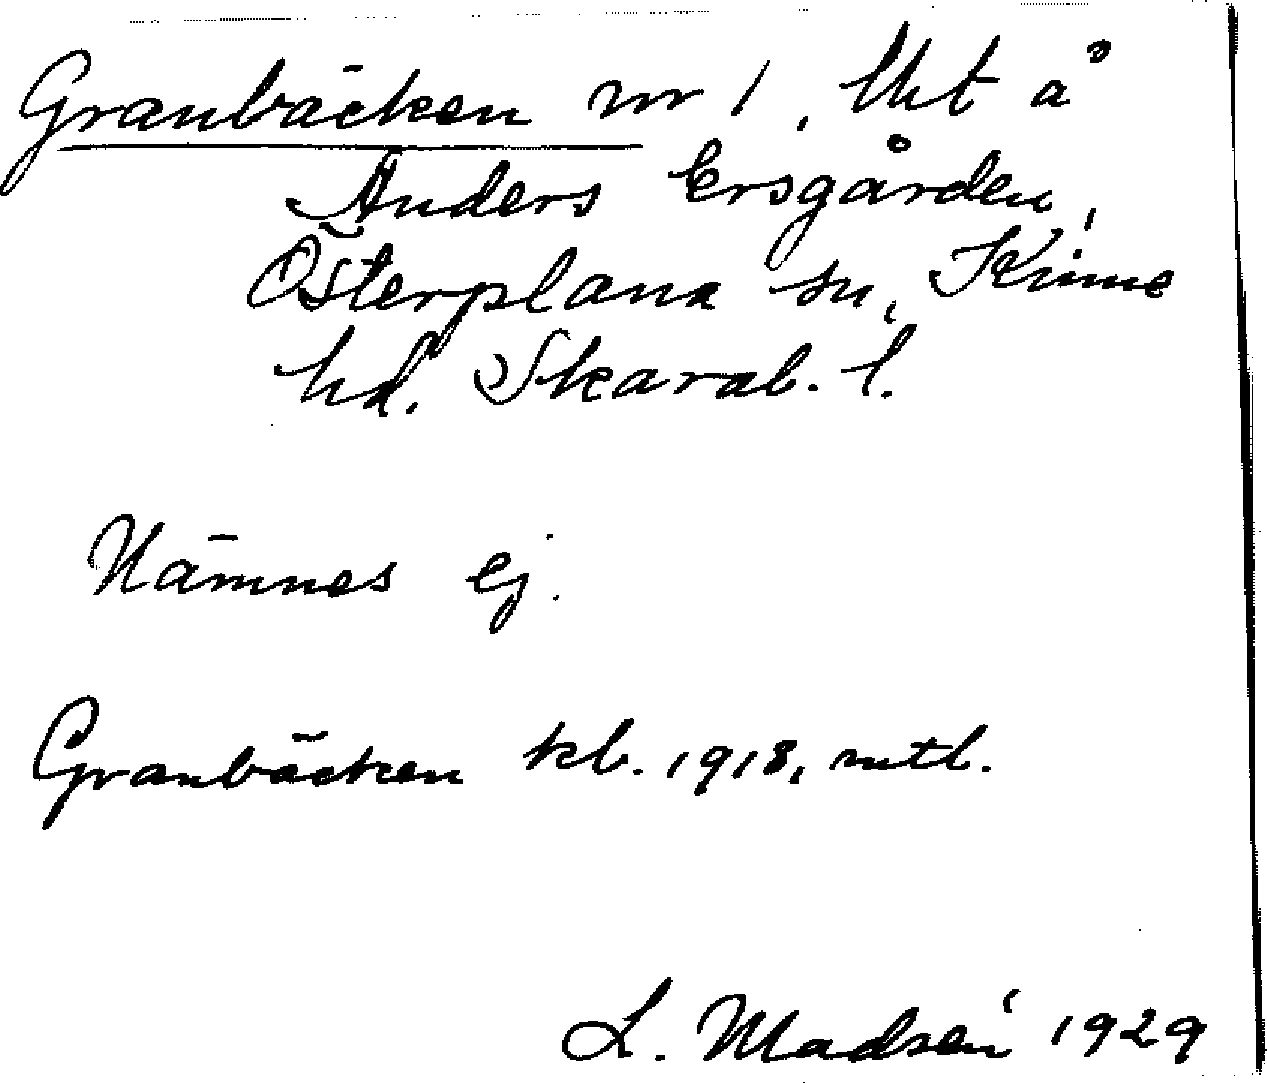 Granbäcken nr 1, lht å
Anders Ersgården,
Österplana sn, Kinne
hd. Skarab. l.
Nämnes ej.
Granbäcken kb. 1918, mtl.
L. Madsén 1929